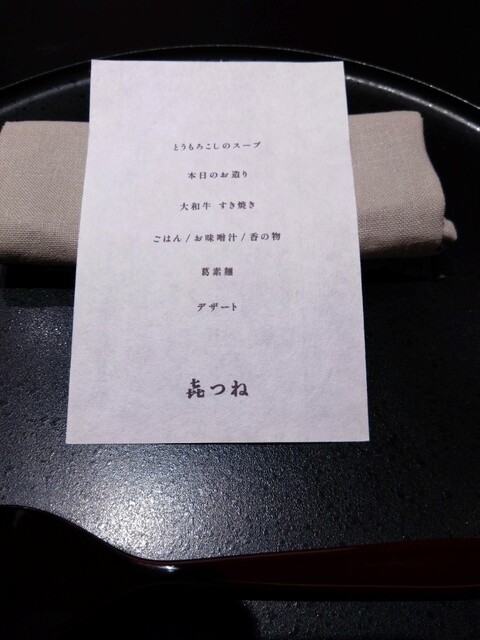 とうもろこしのスープ
本日のお造り
大和牛 すき焼き
ごはん / お味噌汁 / 香の物
葛素麺
デザート
㐂つね